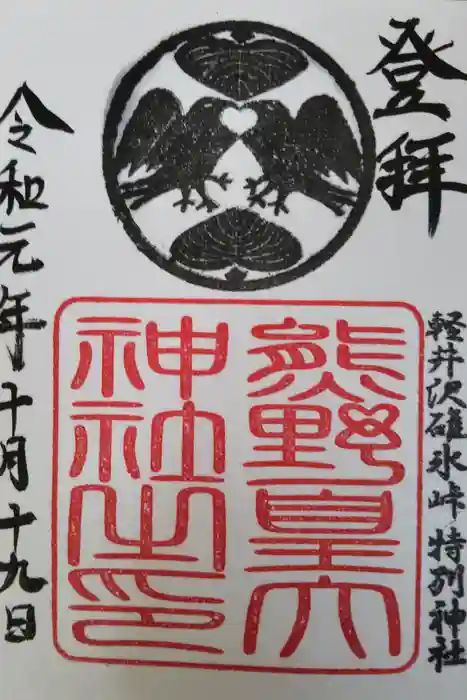 登拝
軽井沢碓氷峠 特別神社
熊野皇大
神社之印
令和元年十月十九日